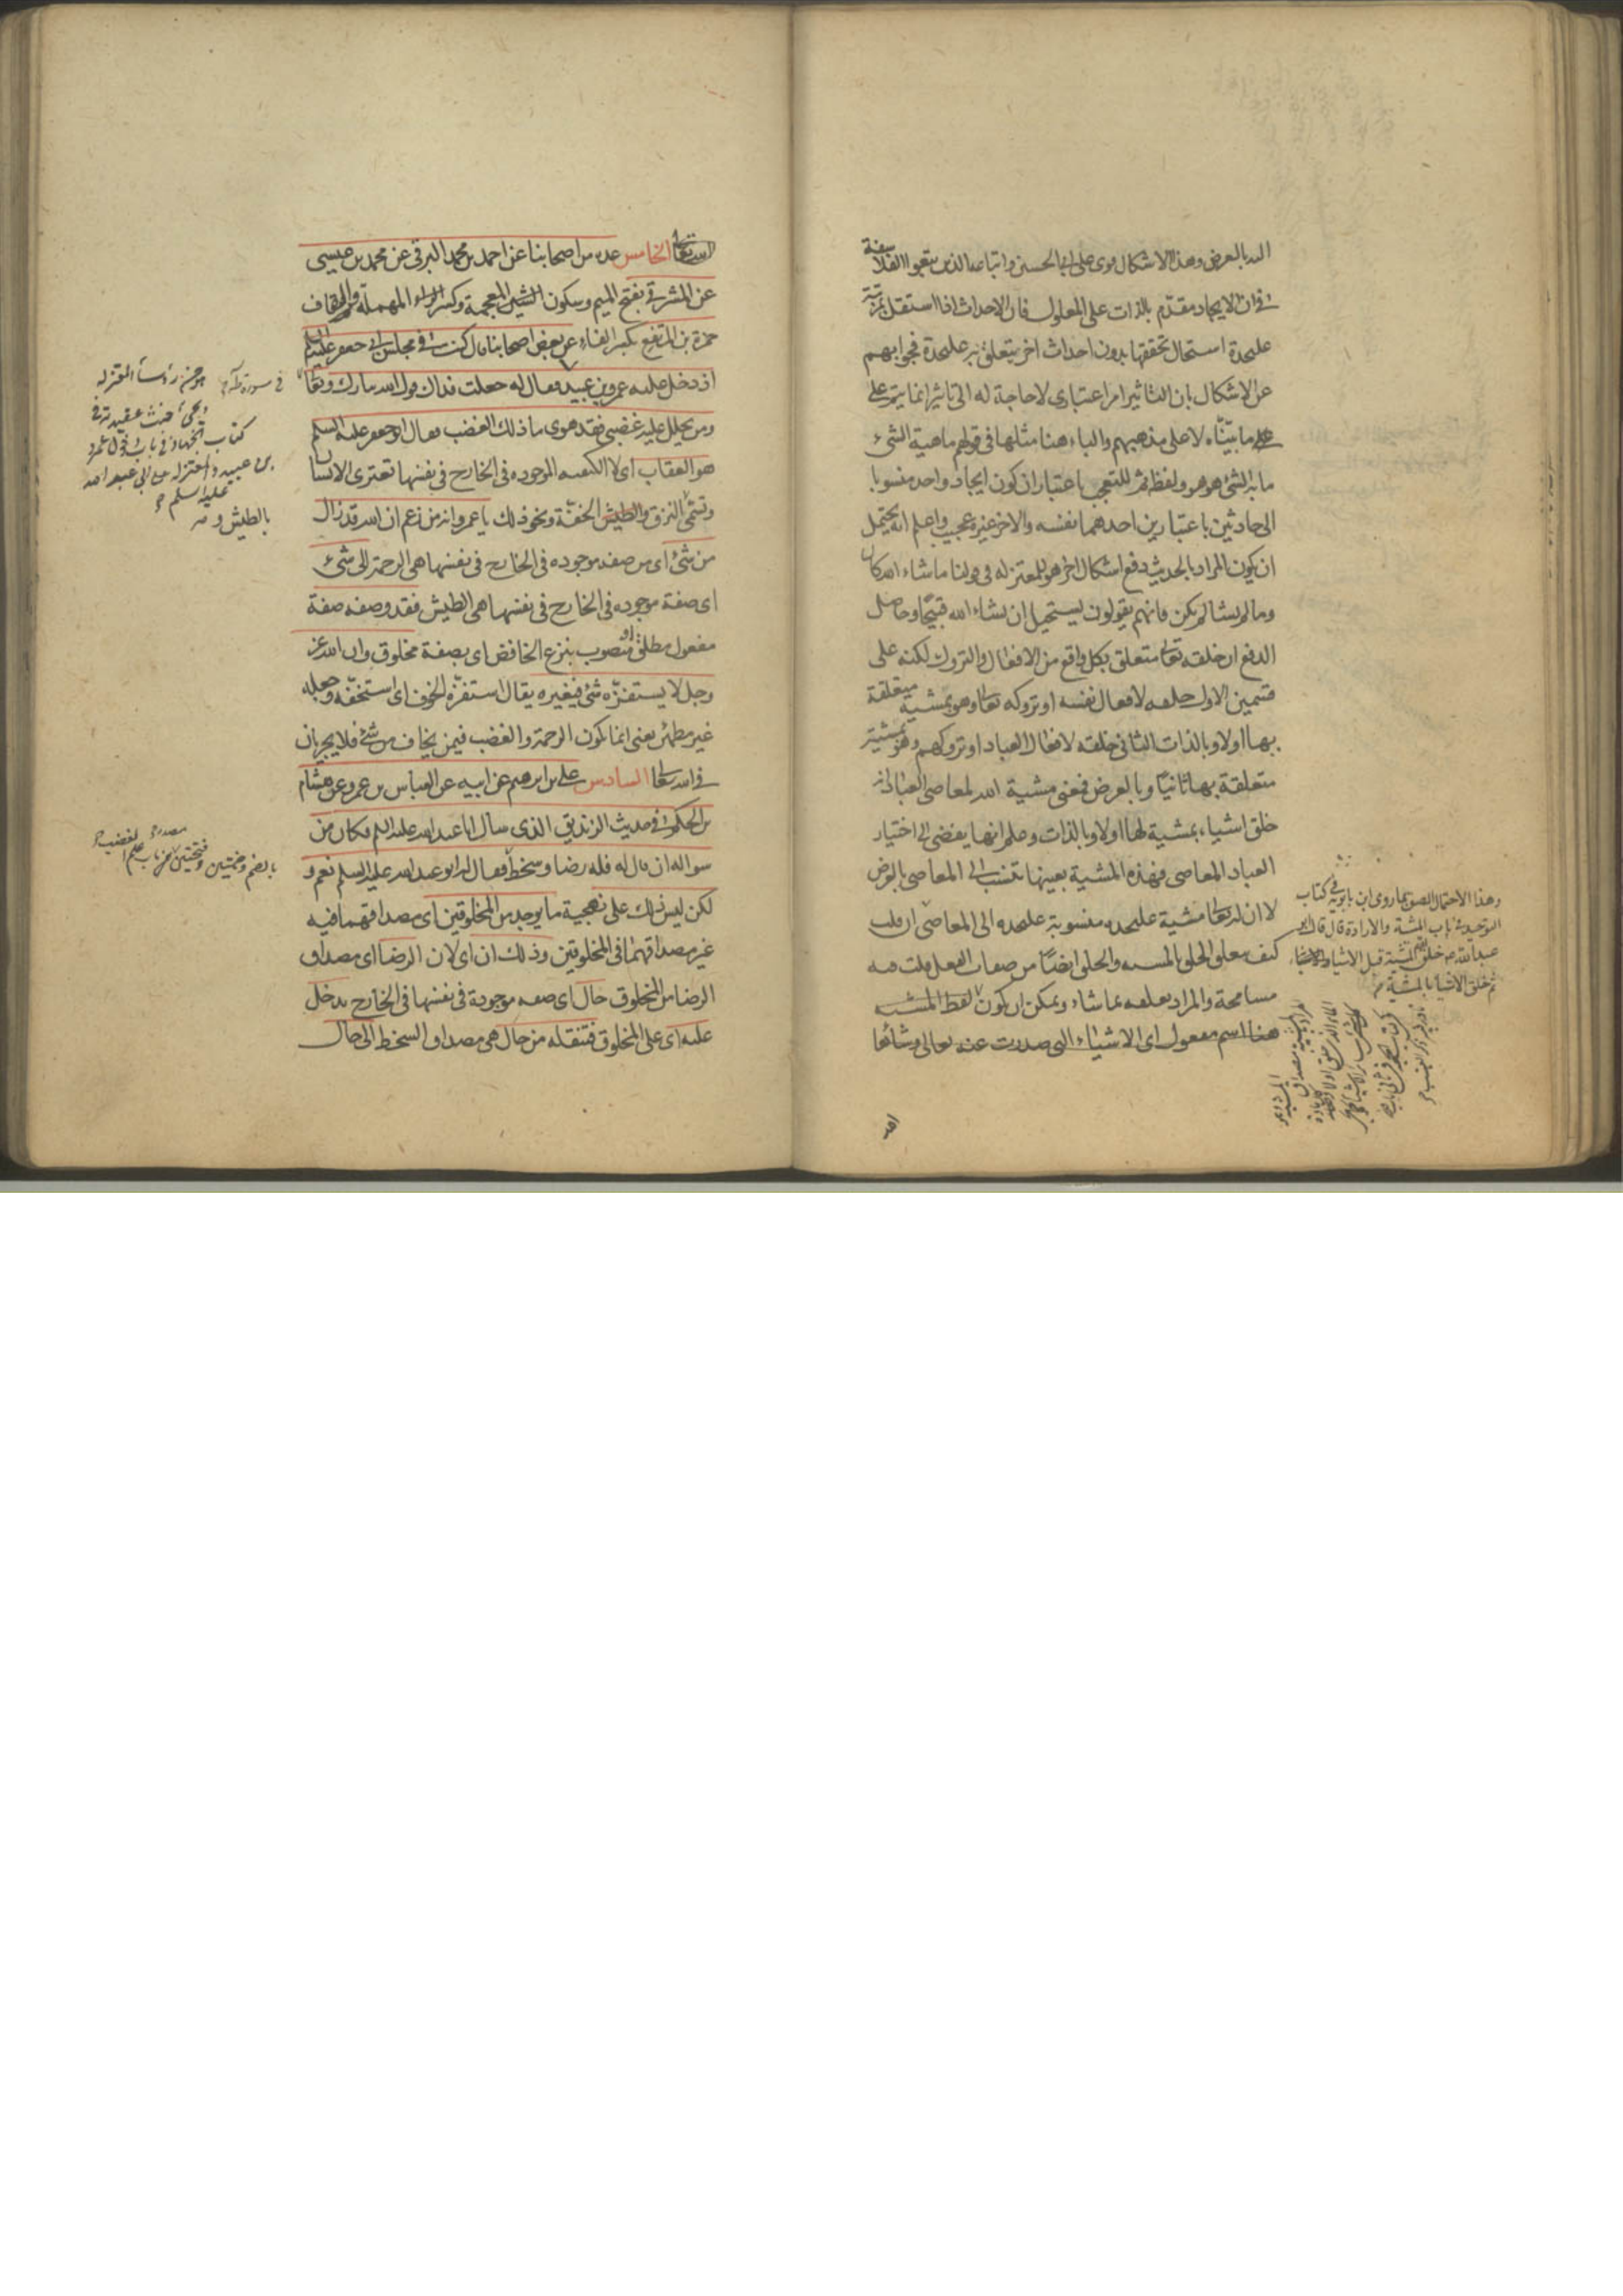 اليه بالعرض وهذا الاشكال قوى على ابى الحسين واتباعه الذين تبعوا الفلاسفة
في ان الايجاد مقدّم بالذات على المعلول فان الاحداث اذا استقل بمرتبة
عليحدة استحال تحققها بدون احداث اخر يتعلق به عليحدة فجوابهم
عن الاشكال بان التاثير امر اعتبارى لا حاجة له الى تاثير انما يتم على
ما بيّنّاه لا على مذهبهم والباء هنا مثلها في قولهم ماهية الشئ
ما به الشئ هو هو ولفظ ثم للتعجب باعتبار ان كون ايجاد واحد منسوبا
الى حادثين باعتبارين احدهما نفسه والاخر غيره عجيب واعلم انه يحتمل
ان يكون المراد بالحديث دفع اشكال اخر هو للمعتزلة في قولنا ما شاء الله كان
وما لم يشأ لم يكن فانهم يقولون يستحيل ان يشاء الله قبيحًا وحاصل
الدفع ان خلقه تعالى متعلق بكل واقع من الافعال والتروك لكنه على
قسمين الاول خلقه لافعال نفسه او تروكه تعالى وهو بمشية متعلقة
بها اولا وبالذات الثاني خلقه لافعال العباد او تروكهم وهو بمشية
متعلقة بها ثانيًا وبالعرض فمعنى مشية الله لمعاصى العباد انه
خلق اشياء بمشية لها اولا وبالذات وعلم انها يفضى الى اختيار
العباد المعاصى فهذه المشية بعينها تنسب الى المعاصى بالعرض
لا ان له تعالى مشية عليحده منسوبة عليحده الى المعاصى ان قلت
كيف يتعلق الخلق بالمشية والخلق ايضًا من صفات الفعل قلت فيه
مسامحة والمراد تعلقه بما شاء ويمكن ان يكون لفظ المشية
هنا اسم مفعول اى الاشياء التى صدرت عنه تعالى وشائها
وهذا الاحتمال الصق بما روى ابن بابويه في كتاب
التوحيد في باب المشية والارادة قال قال ابو
عبد الله خلق الله المشية قبل الاشياء
ثم خلق الاشياء بالمشية
الله تعالى الخامس عدة من اصحابنا عن احمد بن محمد البرقى عن محمد بن عيسى
عن المشرقى بفتح الميم وسكون الشين المعجمة وكسر الراء المهملة والقاف
حمزة بن المرتفع بكسر الفاء عن بعض اصحابنا قال كنت في مجلس ابى جعفر عليه السلم
اذ دخل عليه عمرو بن عبيد فقال له جعلت فداك قول الله تبارك وتعالى
ومن يحلل عليه غضبى فقد هوى ما ذلك الغضب فقال ابو جعفر عليه السلم
هو العقاب اى لا الكيفية الموجوده في الخارج في نفسها تعترى الانسان
وتسمى النزق والطيش الخفّة ونحو ذلك يا عمرو انه من زعم ان الله قد زال
من شئ اى من صفة موجوده في الخارج في نفسها هى الرحمة الى شئ
اى صفة موجوده في الخارج في نفسها هى الطيش فقد وصفه صفة
مفعول مطلق او منصوب بنزع الخافض اى بصفة مخلوق وان الله عز
وجل لا يستفزّه شئ فيغيره يقال استفزّه الخوف اى استخفّه وجعله
غير مطمئن يعنى انما يكون الرحمة والغضب فيمن يخاف من شئ فلا يجريان
في الله تعالى السادس على بن ابرهيم عن ابيه عن العباس بن عمرو عن هشام
بن الحكم في حديث الزنديق الذى سأل ابا عبد الله عليه السلم فكان من
سواله ان قال له فله رضا وسخط فقال ابو عبد الله عليه السلم نعم و
لكن ليس ذلك على نهجية ما يوجد من المخلوقين اى مصداقهما فيه
غير مصداقهما في المخلوقين وذلك ان اى لان الرضا اى مصداق
الرضا من المخلوق حال اى صفة موجودة في نفسها في الخارج تدخل
عليه اى على المخلوق فتنقله من حال هى مصداق السخط الى حال
في سورة طه
هو من رؤساء المعتزلة
كتاب الجهاد في باب دخول عمرو
بن عبيد والمعتزلة على ابى عبد الله
عليه السلم
بالطيش و
مصدر الغضب
بالضم وضمتين وفتحتين من باب علم